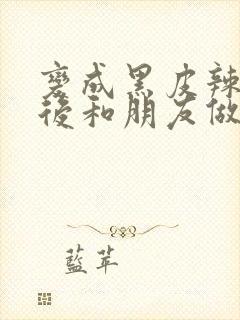 變成黑皮辣
後和朋友做
藍苹